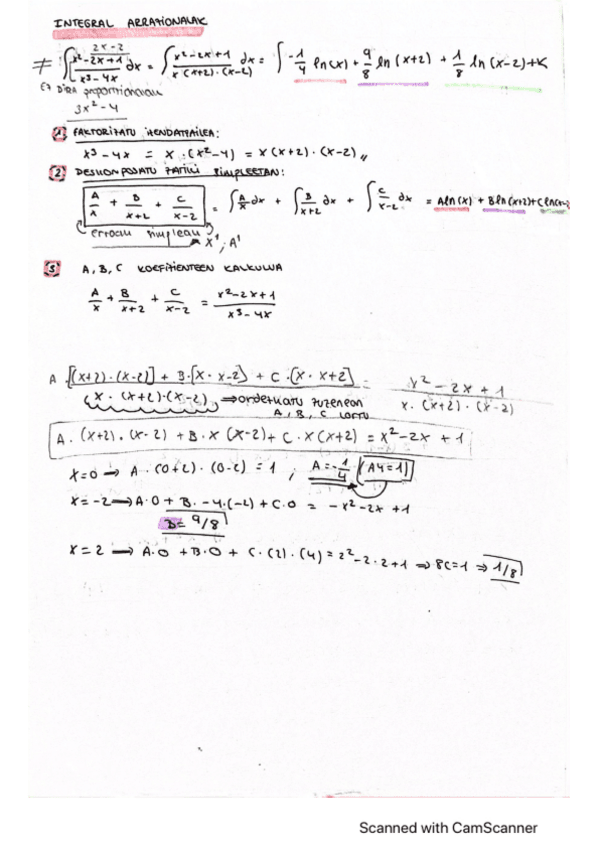 INTEGRAL ARRAZIONALAK
2x-2
≠ ∫ x²-2x+1 / x³-4x dx = ∫ x²-2x+1 / x(x+2)·(x-2) dx = ∫ -1/4 ln(x) + 9/8 ln(x+2) + 1/8 ln(x-2)+K
Ez DIRA proportzionalak
3x²-4
1 FAKTORIZATU IZENDATZAILEA:
x³-4x = x·(x²-4) = x(x+2)·(x-2)
2 DESKONPOSATU ZATIKI SINPLEETAN:
A/x + B/x+2 + C/x-2 = ∫ A/x dx + ∫ B/x+2 dx + ∫ C/x-2 dx = Aln(x) + Bln(x+2)+Cln(x-2
erroak sinpleak x¹; A¹
3 A, B, C KOEFIZIENTEEN KALKULUA
A/x + B/x+2 + C/x-2 = x²-2x+1 / x³-4x
A·[(x+2)·(x-2)] + B·[x·x-2) + C·[x·x+2] / x·(x+2)·(x-2) = x²-2x+1 / x·(x+2)·(x-2)
⇒ordezkatu zuzenean
A, B, C lortu
A·(x+2)·(x-2) + B·x(x-2)+ C·x(x+2) = x²-2x+1
x=0 → A·(0+2)·(0-2) = 1 ; A=-1/4 (A4=1)
x=-2 → A·0 + B·-4·(-2) + C·0 = -x²-2x+1
B= 9/8
x=2 → A·0 +B·0 + C·(2)·(4)=2²-2·2+1 ⇒ 8C=1 ⇒ 1/8
Scanned with CamScanner